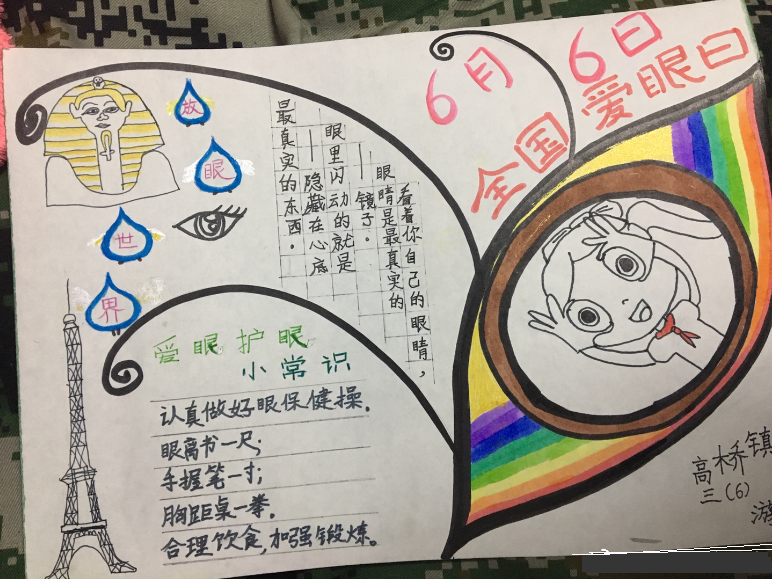 6月6日
全国爱眼日
放
眼
世
界
看着你自己的眼睛，
眼睛是最真实的
—镜子。
眼里闪动的就是
—隐藏在心底
最真实的东西。
爱眼护眼
小常识
认真做好眼保健操.
眼离书一尺;
手握笔一寸;
胸距桌一拳.
合理饮食,加强锻炼。
高桥镇
三(6)